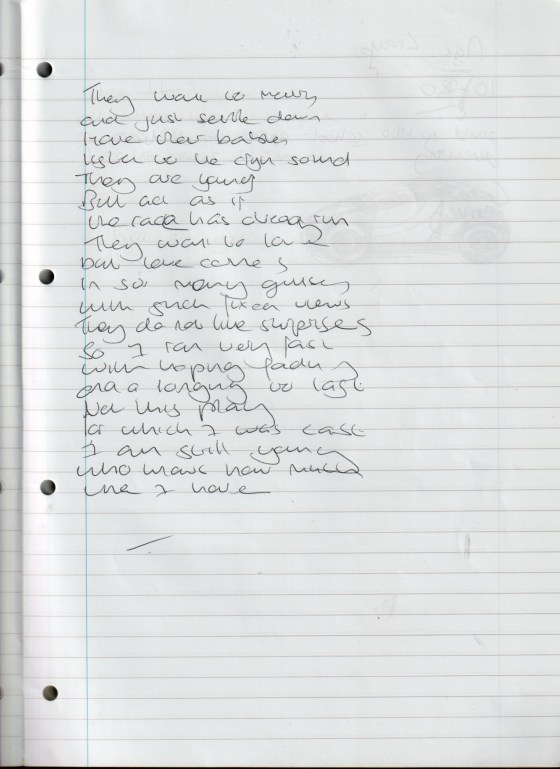 They want to marry
and just settle down
Have their babies
listen to the sound
They are young
But act as if
the race has already run
They want to love
but love comes
in so many guises
with such fixed views
They do not like surprises
So I ran very fast
with hoping fading
and a longing to last
Not this play
for which I was cast
I am still young
who knows how much
time I have